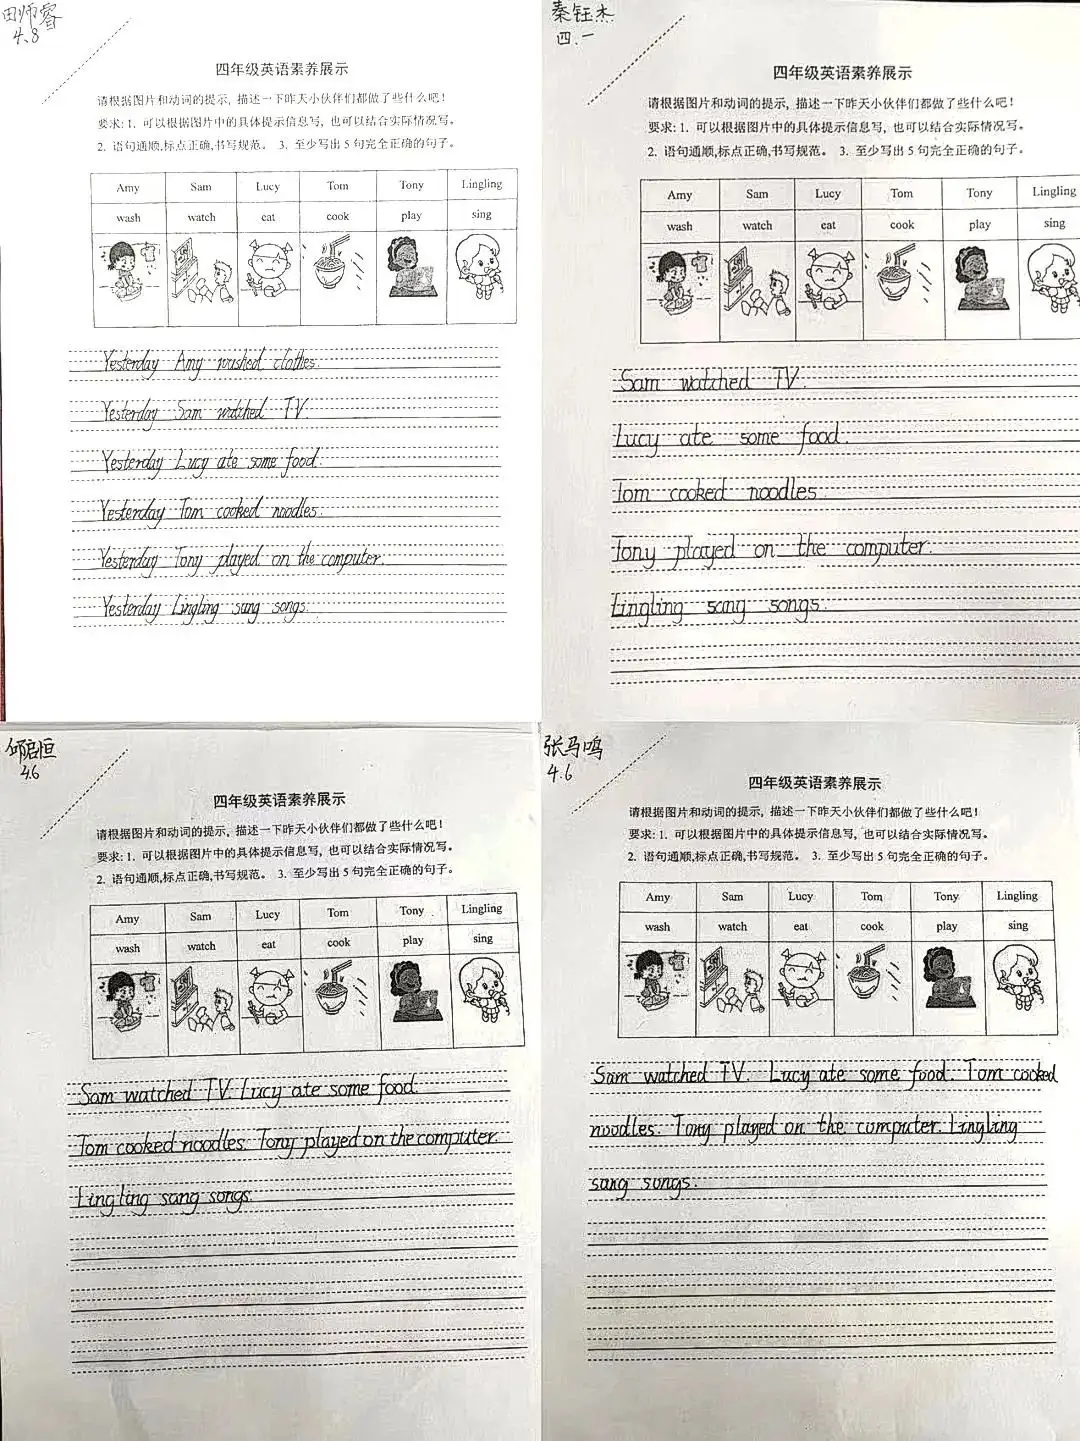 田师睿
4.8
四年级英语素养展示
请根据图片和动词的提示, 描述一下昨天小伙伴们都做了些什么吧!
要求: 1. 可以根据图片中的具体提示信息写, 也可以结合实际情况写。
2. 语句通顺,标点正确,书写规范。 3. 至少写出 5 句完全正确的句子。
Amy Sam Lucy Tom Tony Lingling
wash watch eat cook play sing
Yesterday Amy washed clothes.
Yesterday Sam watched TV.
Yesterday Lucy ate some food.
Yesterday Tom cooked noodles.
Yesterday Tony played on the computer.
Yesterday Lingling sang songs.
秦钰杰
四.一
四年级英语素养展示
请根据图片和动词的提示, 描述一下昨天小伙伴们都做了些什么吧!
要求: 1. 可以根据图片中的具体提示信息写, 也可以结合实际情况写。
2. 语句通顺,标点正确,书写规范。 3. 至少写出 5 句完全正确的句子。
Amy Sam Lucy Tom Tony Lingling
wash watch eat cook play sing
Sam watched TV.
Lucy ate some food.
Tom cooked noodles.
Tony played on the computer.
Lingling sang songs.
邱启恒
4.6
四年级英语素养展示
请根据图片和动词的提示, 描述一下昨天小伙伴们都做了些什么吧!
要求: 1. 可以根据图片中的具体提示信息写, 也可以结合实际情况写。
2. 语句通顺,标点正确,书写规范。 3. 至少写出 5 句完全正确的句子。
Amy Sam Lucy Tom Tony Lingling
wash watch eat cook play sing
Sam watched TV. Lucy ate some food.
Tom cooked noodles. Tony played on the computer.
Lingling sang songs.
张马鸣
4.6
四年级英语素养展示
请根据图片和动词的提示, 描述一下昨天小伙伴们都做了些什么吧!
要求: 1. 可以根据图片中的具体提示信息写, 也可以结合实际情况写。
2. 语句通顺,标点正确,书写规范。 3. 至少写出 5 句完全正确的句子。
Amy Sam Lucy Tom Tony Lingling
wash watch eat cook play sing
Sam watched TV. Lucy ate some food. Tom cooked
noodles. Tony played on the computer. Lingling
sang songs.